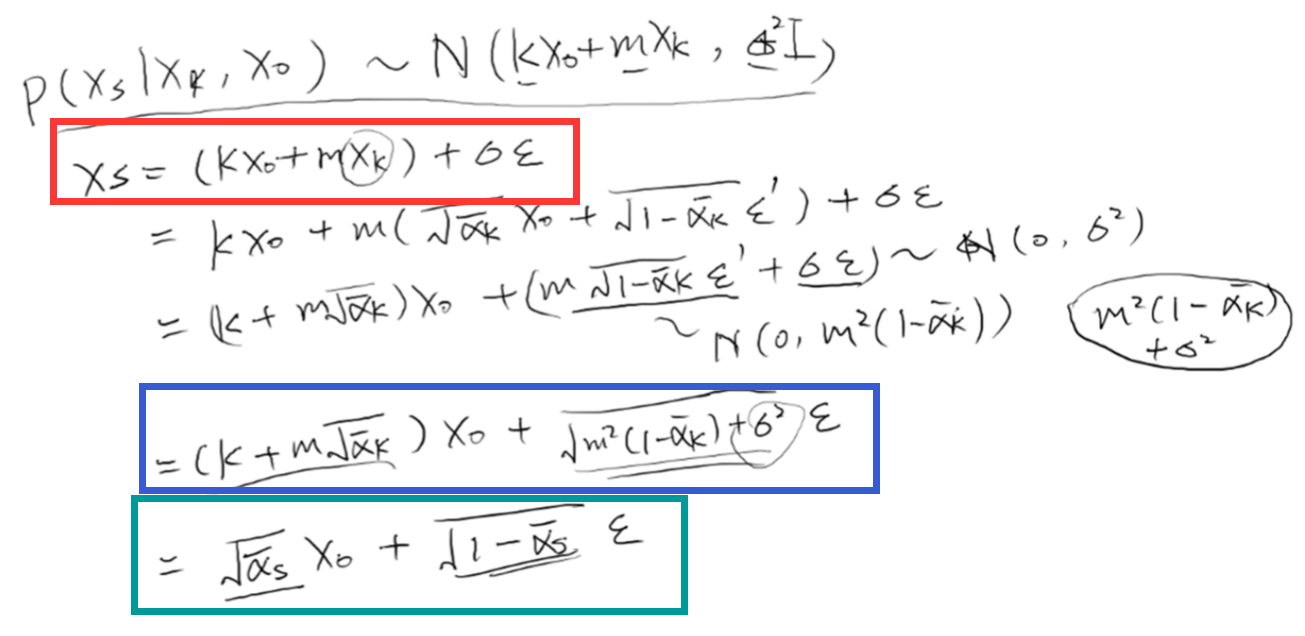 P(xₛ|x_k, x₀) ~ N(kx₀+mx_k, σ²I)
xₛ = (kx₀+mx_k) + σε
= kx₀ + m(√ᾱ_k x₀ + √1-ᾱ_k ε′) + σε
= (k + m√ᾱ_k)x₀ + (m√1-ᾱ_k ε′ + σε) ~ N(0, σ²)
~ N(0, m²(1-ᾱ_k))
m²(1-ᾱ_k)
+σ²
= (k + m√ᾱ_k) x₀ + √m²(1-ᾱ_k)+σ² ε
= √ᾱₛ x₀ + √1-ᾱₛ ε